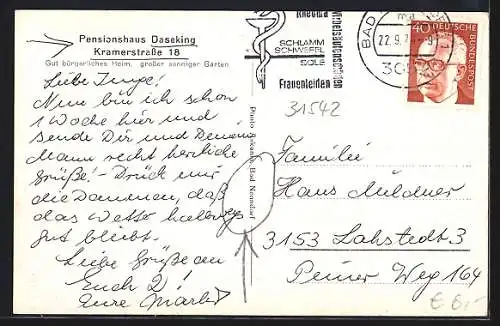 Pensionshaus Daseking
Kramerstraße 18
Gut bürgerliches Heim, großer sonniger Garten
Liebe Inge!
Nun bin ich schon
1 Woche hier und
sende Dir und Deinem
Mann recht herzliche
Grüße! – Drück mir
die Daumen, daß
das Wetter
gut bleibt.
Liebe Grüße an
Euch 2!
Eure
Bad Nenndorf
Rheuma
SCHLAMM
SCHWEFEL
SOLE
Frauenleiden
BAD
22.9.7
40
DEUTSCHE BUNDESPOST
31542
Familie
Hans Müldner
3153 Lahstedt 3
Peiner Weg 164
€ 6,-